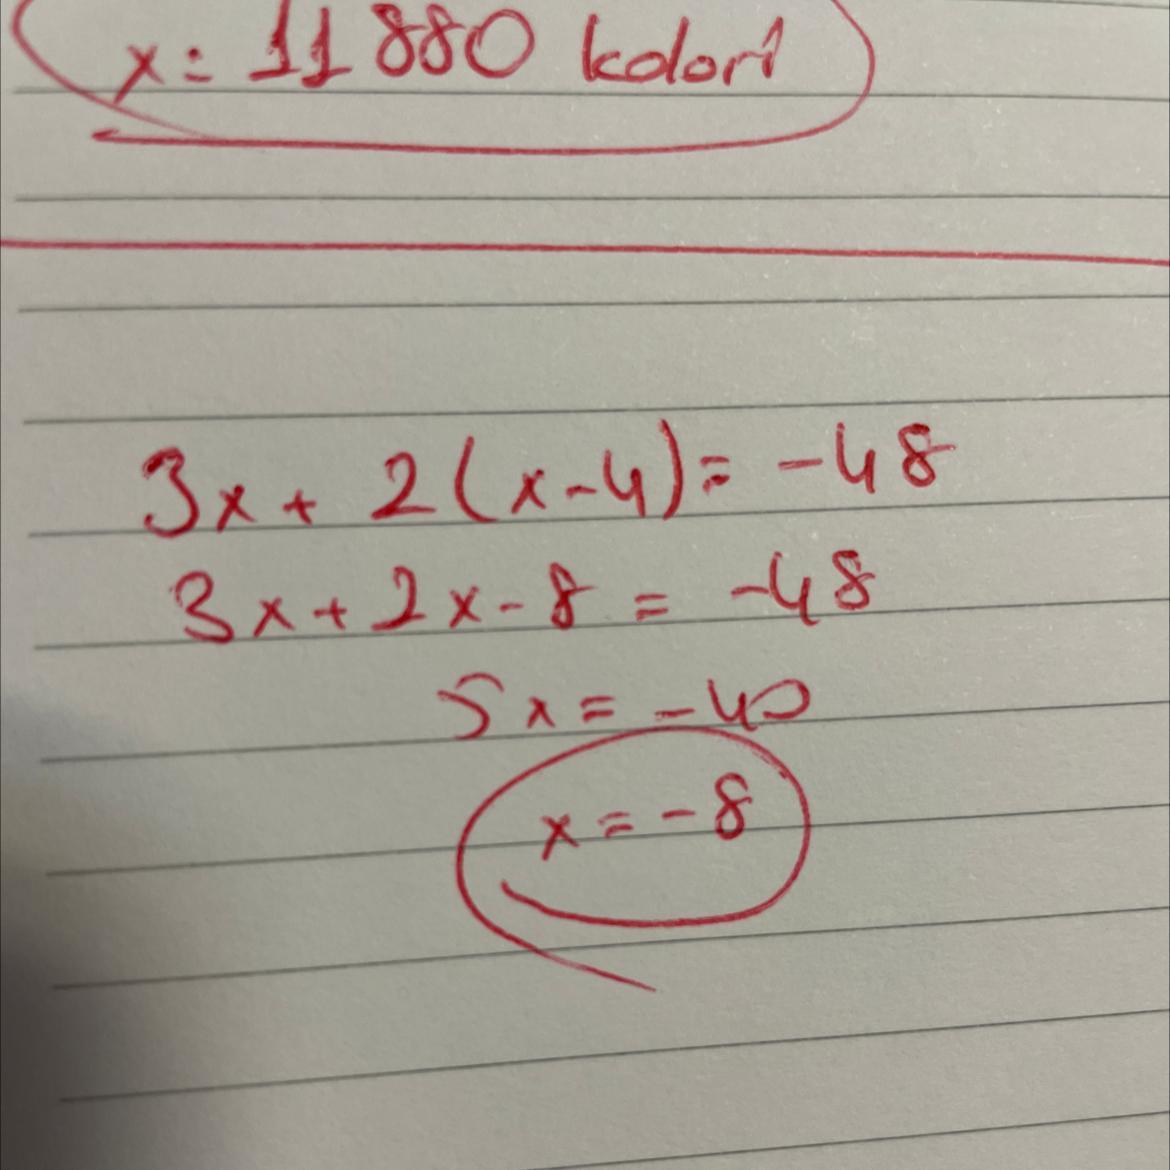 x = 11880 kalori
3x + 2(x-4) = -48
3x + 2x - 8 = -48
5x = -40
x = -8